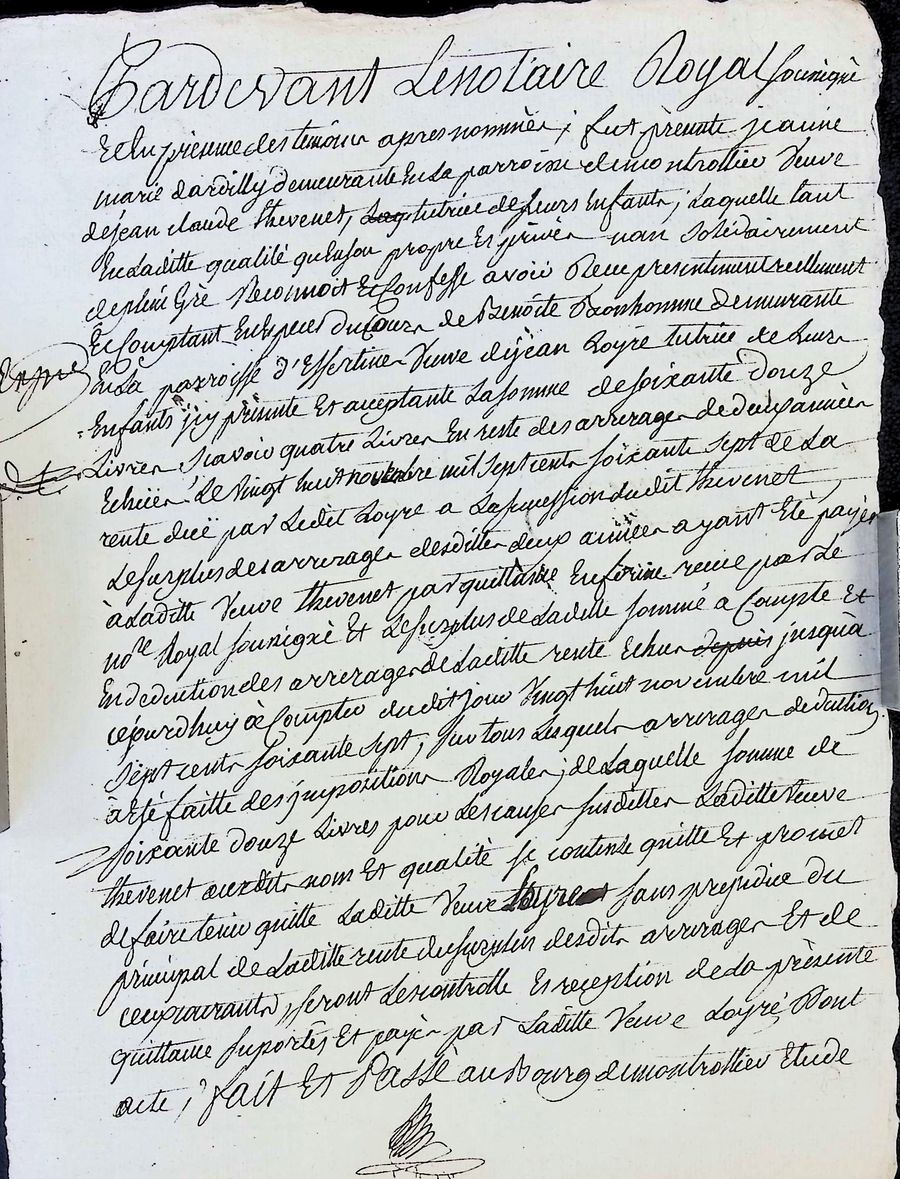 Pardevant Le notaire Royal soussigné
Et En presence des temoins apres nommés ; fut presente jeanne
marie dardilly demeurante En La parroisse de montrottier Veuve
de jean claude thevenet, tutrice de Leurs Enfants ; Laquelle tant
En Laditte qualité qu'En son propre Et privé nom solidairement
de plein Gré Reconnoit Et Confesse avoir Receu presentement reellement
Et Comptant En Especes du Cours de Benoite Bonhomme demeurante
En La parroisse d'Essertines Veuve de jean Loyre tutrice de Leurs
Enfants jcy presente Et acceptante La somme de soixante douze
Livres scavoir quatre Livres En reste des arrerages de deux années
Echües Le Vingt huit novembre mil sept cents soixante sept de La
rente düe par Ledit Loyre a La succession dudit thevenet
Le surplus des arrerages desdittes deux années ayant Eté payés
à Laditte Veuve thevenet par quittance recue par Le
no.re Royal soussigné Et Le surplus de Laditte somme a Compte Et
En deduction des arrerages de Laditte rente Echus depuis jusqua
cejourdhuy à Compter dudit jour Vingt huit novembre mil
sept cents soixante sept, sur tous Lesquels arrerages deduction
à Eté faitte des jmpositions Royales ; de Laquelle somme de
soixante douze Livres pour Les causes susdittes Laditte Veuve
thevenet auxdits nom Et qualité se contente quitte Et promet
de faire tenir quitte Laditte Veuve Loyre sans prejudice du
principal de Laditte rente du surplus desdits arrerages Et de
ceux courants, seront Les controlle Et reception de La presente
quittance suportés Et payés par Laditte Veuve Loyré Dont
acte, fait Et Passé au Bourg de montrottier Etude